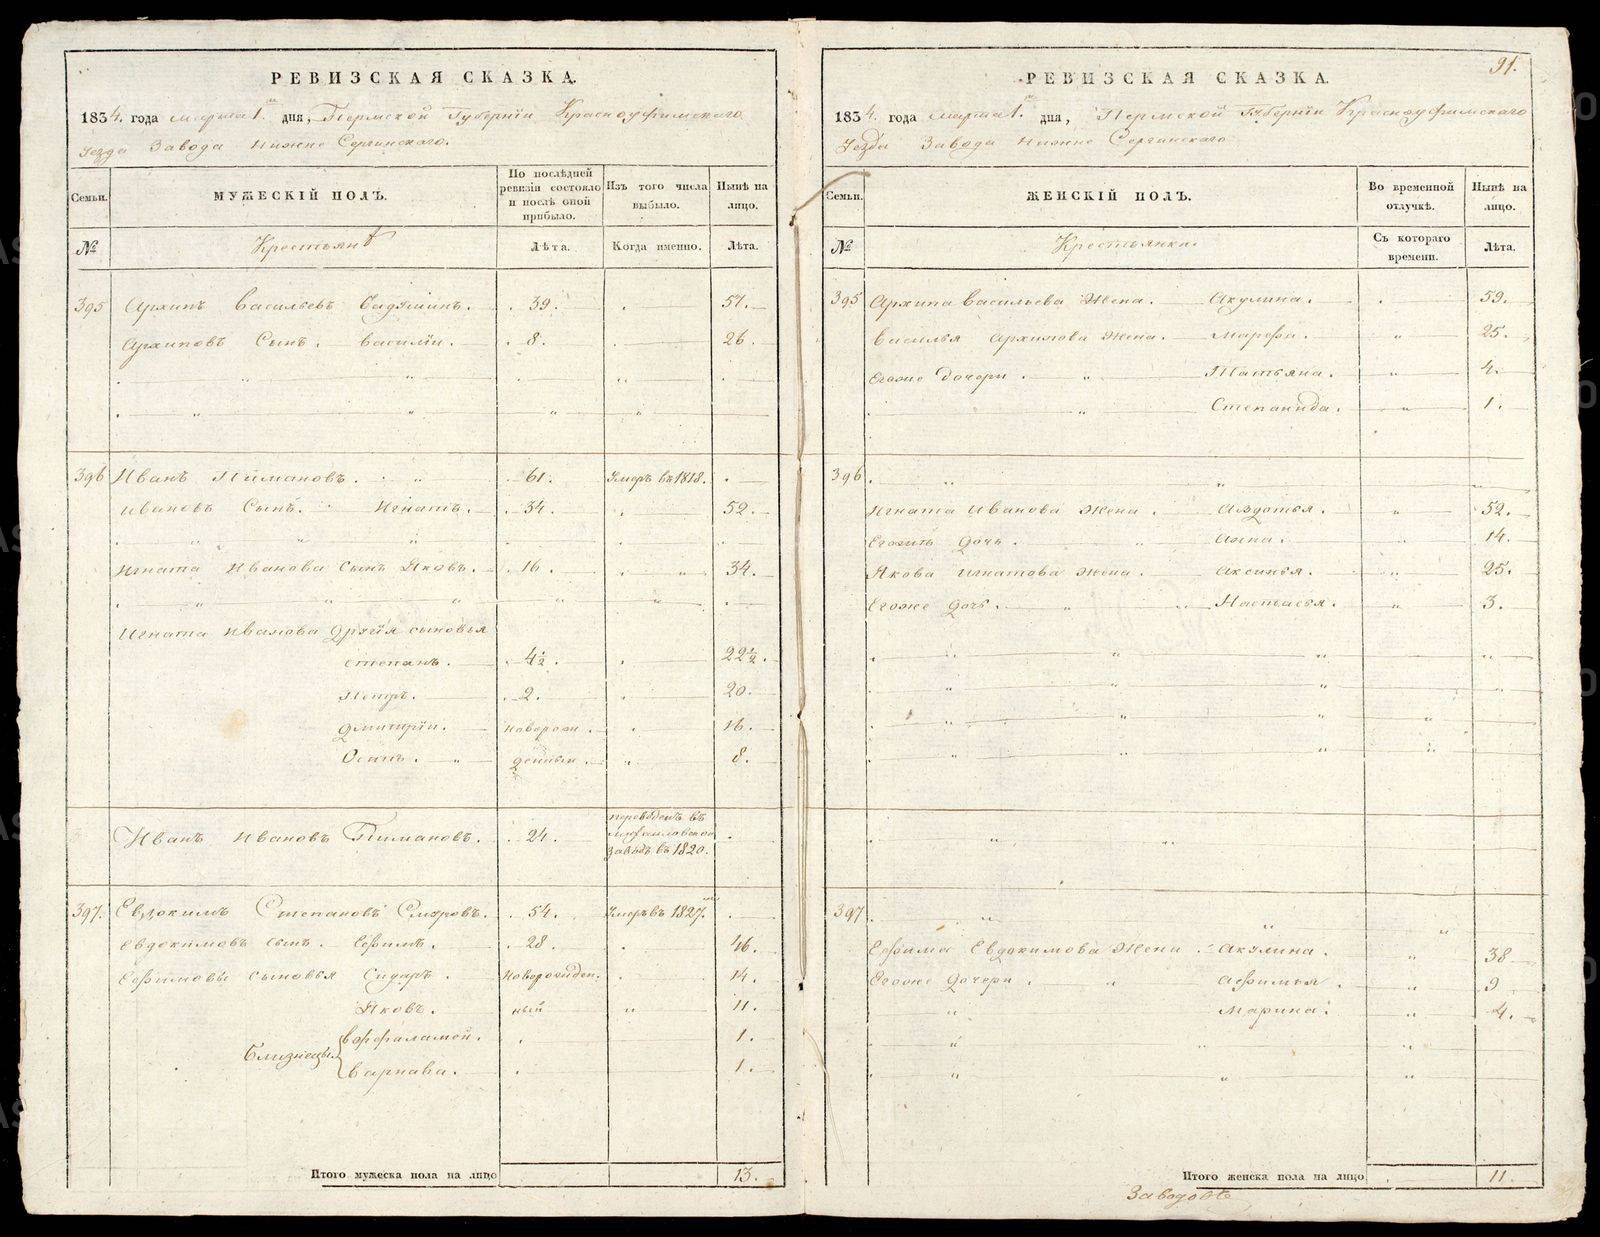 РЕВИЗСКАЯ СКАЗКА.
1834. года марта 1. дня, Пермской Губерніи Красноуфимскаго
Уезда Завода Нижне Сергинскаго.
Семьи.
МУЖЕСКІЙ ПОЛЪ.
По послѣдней ревизіи состояло и послѣ оной прибыло.
Изъ того числа выбыло.
Нынѣ на лицо.
№
Крестьянъ
Лѣта.
Когда именно.
Лѣта.
395 Архипъ Васильевъ . 39. 57.
Архиповъ Сынъ. Василіи. . 8. 26.
396 Иванъ Пимановъ. . 61. Умеръ въ 1818.
Ивановъ Сынъ. Игнатъ. . 34. 52.
Игната Иванова Сынъ Яковъ. . 16. 34.
Игната Иванова Другія сыновья
Степанъ. . 4½. 22½.
Петръ. . 2. 20.
Дмитріи. новорож 16.
Осипъ. денныи 8.
Иванъ Ивановъ Пимановъ. . 24. переведенъ въ
Михаиловской
заводъ въ 1820.
397. Евдокимъ Степановъ . 54. Умеръ въ 1827.
Евдокимовъ сынъ. Ефимъ. . 28. 46.
Ефимовы сыновья Сидаръ. Новорожден. 14.
Яковъ. ный 11.
Близнецы. Варфаламей. 1.
Варнава. 1.
Итого мужеска пола на лицо 13.
91.
РЕВИЗСКАЯ СКАЗКА.
1834. года марта 1. дня, Пермской Губерніи Красноуфимскаго
Уезда Завода Нижне Сергинскаго
Семьи.
ЖЕНСКІЙ ПОЛЪ.
Во временной отлучкѣ.
Нынѣ на лицо.
№
Крестьянки.
Съ котораго времени.
Лѣта.
395 Архипа Васильева Жена. Акулина. 59.
Василья Архипова Жена. Марфа. 25.
Егоже Дочери. Татьяна. 4.
Степанида. 1.
396
Игната Иванова Жена. Авдотья. 52.
Дочь. Анна. 14.
Якова Игнатова Жена. Аксинья. 25.
Егоже Дочь. Настасья. 3.
397
Ефима Евдокимова Жена. Акулина. 38
Егоже Дочери. Афимья. 9
Марина. 4.
Итого женска пола на лицо 11.